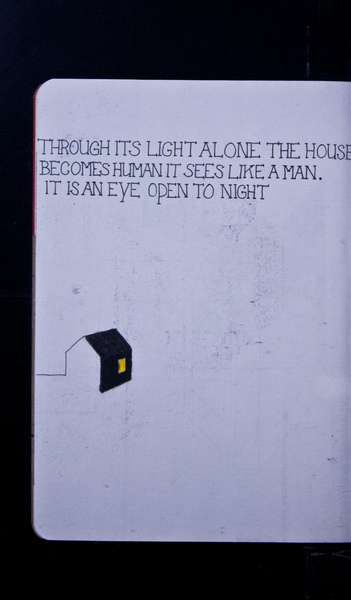 THROUGH ITS LIGHT ALONE THE HOUSE
BECOMES HUMAN IT SEES LIKE A MAN.
IT IS AN EYE OPEN TO NIGHT